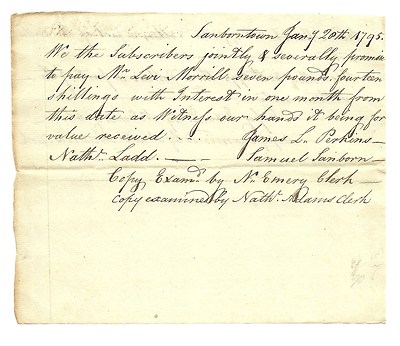 Sanborntown Jany 20th 1795.
We the Subscribers jointly & severally promise
to pay Mr. Levi Morrill Seven pounds, fourteen
shillings with Interest in one month from
this date as Witness our hands it being for
value received. - - . James L. Perkins -
Nathl. Ladd. — — Samuel Sanborn -
Copy Examd. by N. Emery Clerk -
Copy examined by Nathl. Adams Clerk